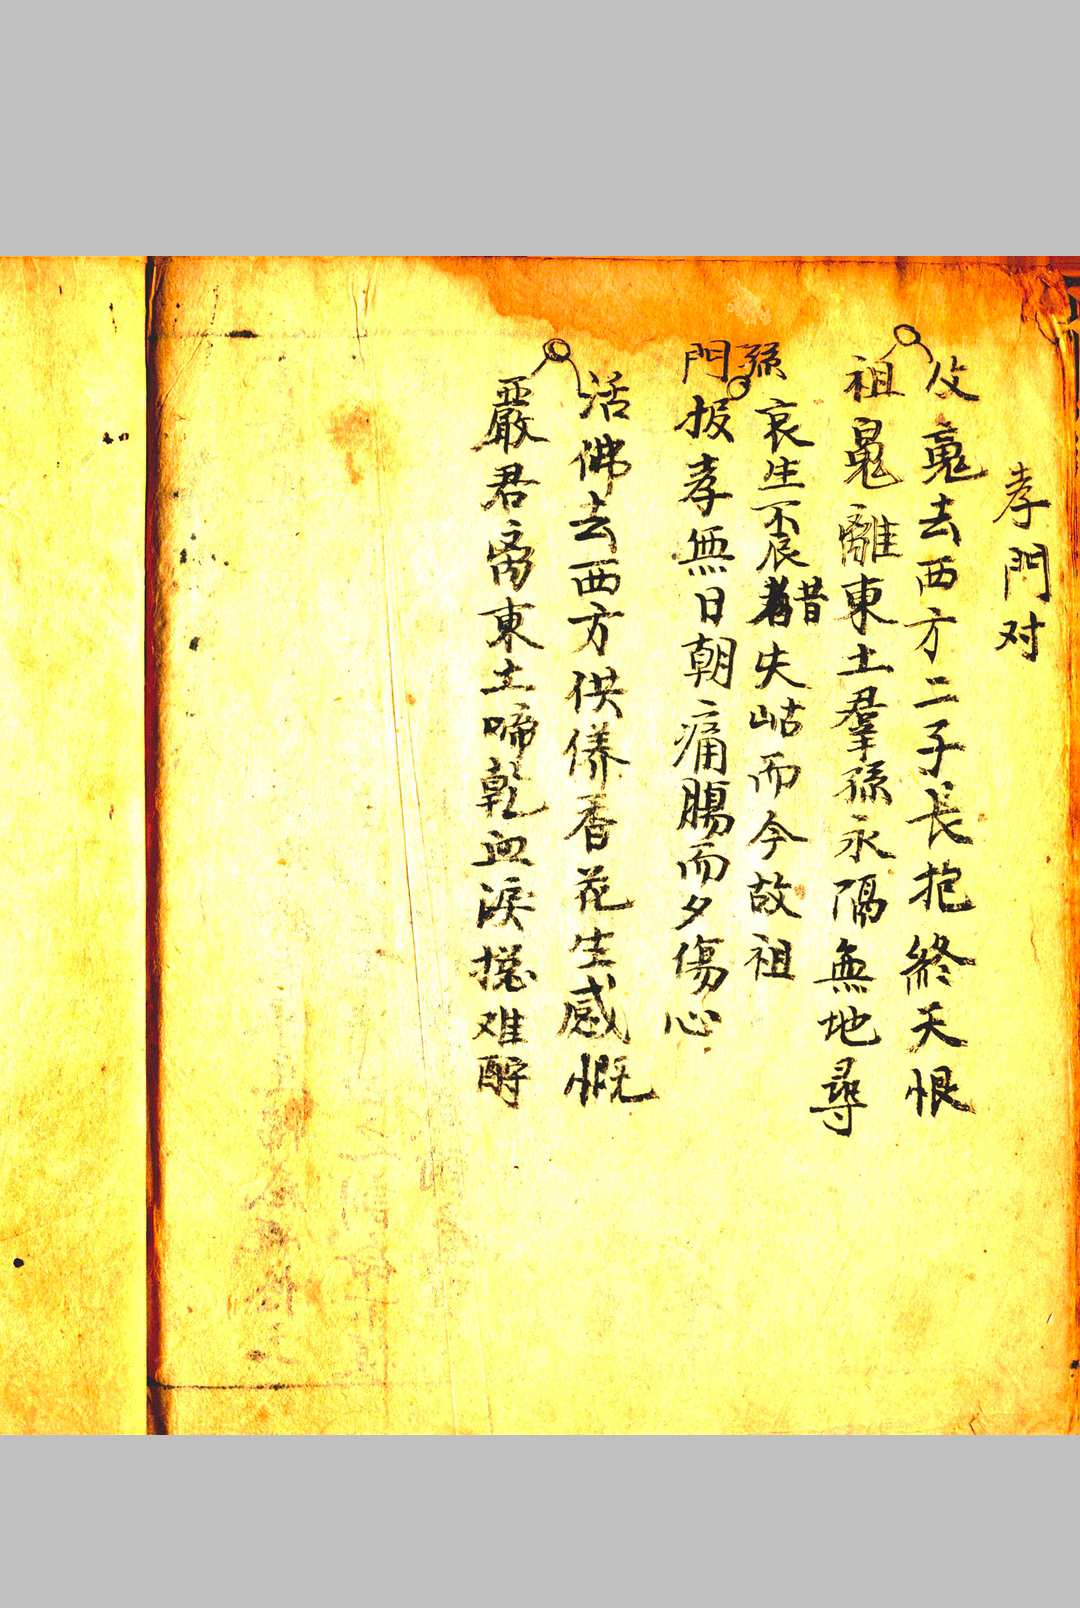 孝門对
父魂去西方二子長抱終天恨
祖魂離東土羣孫永隔無地尋
孫哀生不辰昔失岵而今故祖
門报孝無日朝痛腸而夕傷心
活佛去西方供養香花生感慨
嚴君离東土啼乾血淚搃难酧